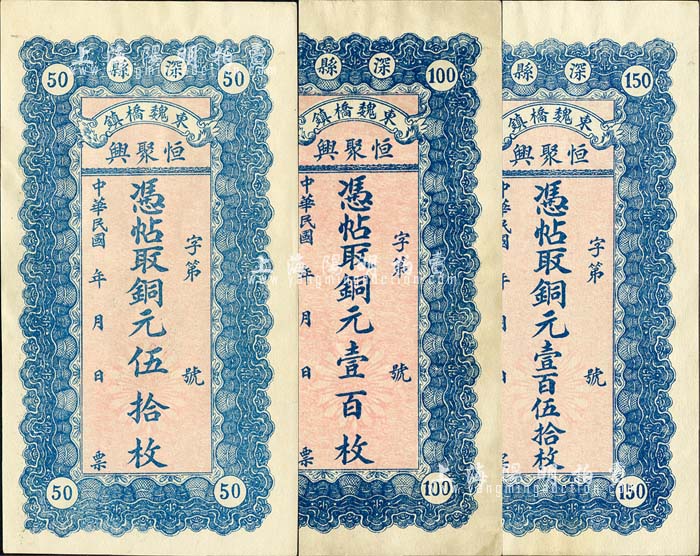 50 縣深 50
鎮橋魏東
興聚恒
憑帖取銅元伍拾枚
字第 號
中華民國 年 月 日 票
50 50
縣深 100
鎮橋魏東
興聚恒
憑帖取銅元壹百枚
字第 號
中華民國 年 月 日 票
100
縣深 150
鎮橋魏東
興聚恒
憑帖取銅元壹百伍拾枚
字第 號
中華民國 年 月 日
150
上海陽明拍賣
www.yangmingauction.com